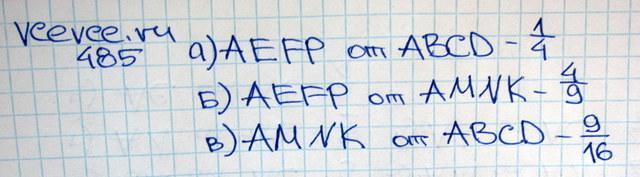 veevee.ru
485 а) AEFP от ABCD - 1/4
Б) AEFP от AMNK - 4/9
в) AMNK от ABCD - 9/16